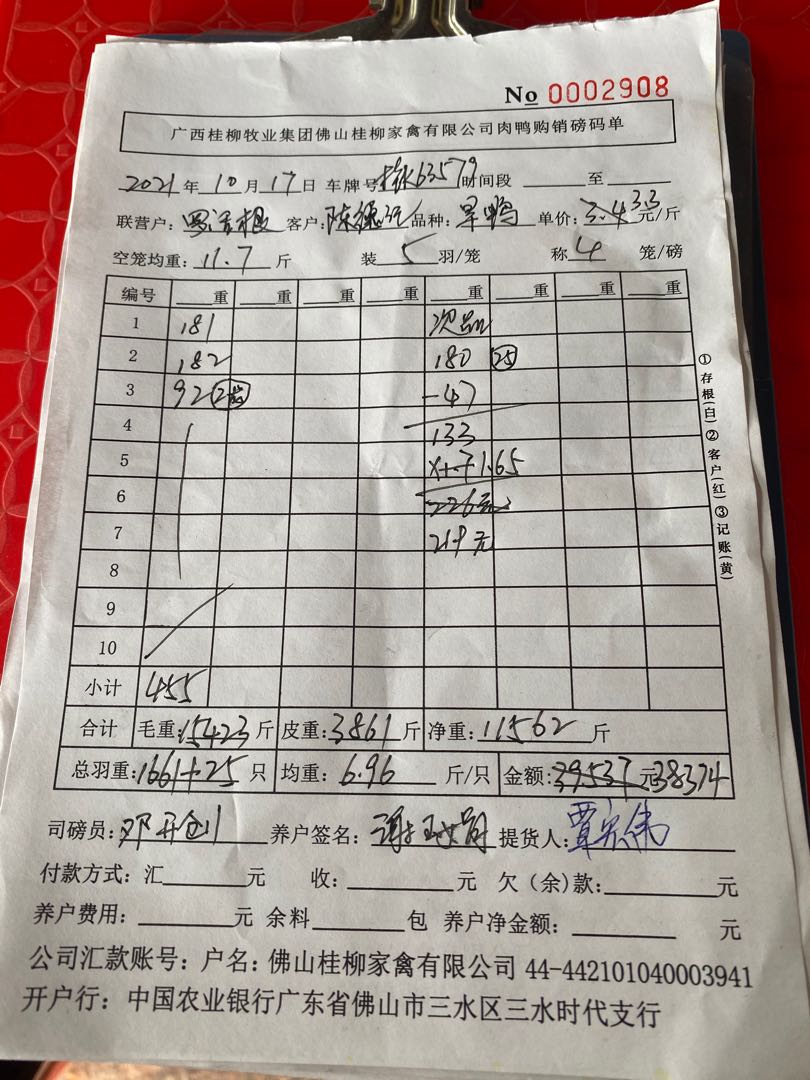 No 0002908
广西桂柳牧业集团佛山桂柳家禽有限公司肉鸭购销磅码单
2021年10月17日 车牌号 63579 时间段 至
联营户: 根 客户: 陈德 品种: 旱鸭 单价: 3.4 3.3 元/斤
空笼均重: 11.7 斤 装 5 羽/笼 称 4 笼/磅
编号 重 重 重 重 重 重 重 重
1 181 次品
2 182 180 25
3 92 -47
4 133
5 1.65
6 226元
7 219元
8
9
10
小计 455
合计 毛重: 15423 斤 皮重: 3861 斤 净重: 11562 斤
总羽重: 1661+25 只 均重: 6.96 斤/只 金额: 39537 元 38374
司磅员: 邓开创 养户签名: 提货人: 覃宏伟
付款方式: 汇 元 收: 元 欠(余)款: 元
养户费用: 元 余料 包 养户净金额: 元
公司汇款账号: 户名: 佛山桂柳家禽有限公司 44-442101040003941
开户行: 中国农业银行广东省佛山市三水区三水时代支行
①存根(白) ②客户(红) ③记账(黄)